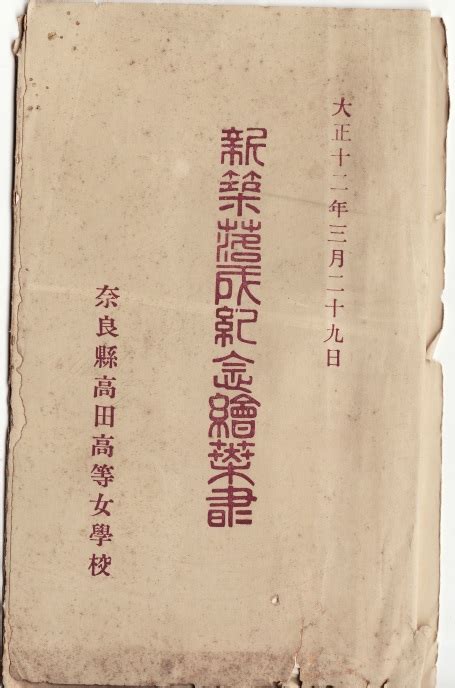 大正十二年三月二十九日
新築落成紀念繪葉書
奈良縣高田高等女學校